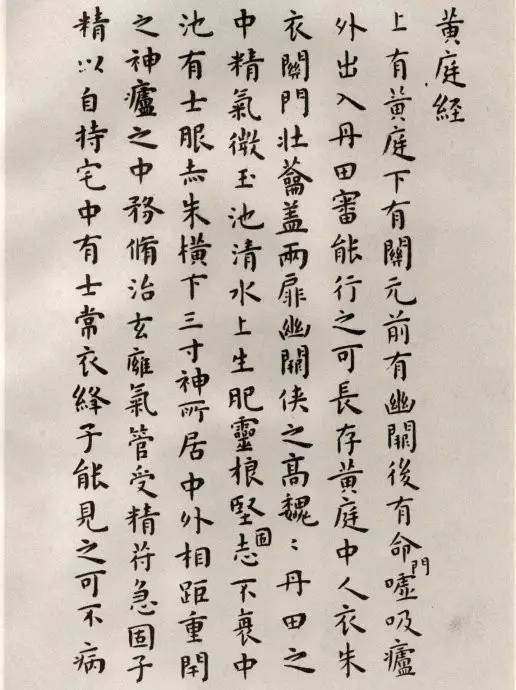 黃庭經
上有黃庭下有關元前有幽關後有命門噓吸廬
外出入丹田審能行之可長存黃庭中人衣朱
衣關門壯蘥盖兩扉幽關俠之高魏〻丹田之
中精氣微玉池清水上生肥靈根堅固志不衰中
池有士服赤朱橫下三寸神所居中外相距重閉
之神廬之中務脩治玄廱氣管受精苻急固子
精以自持宅中有士常衣絳子能見之可不病